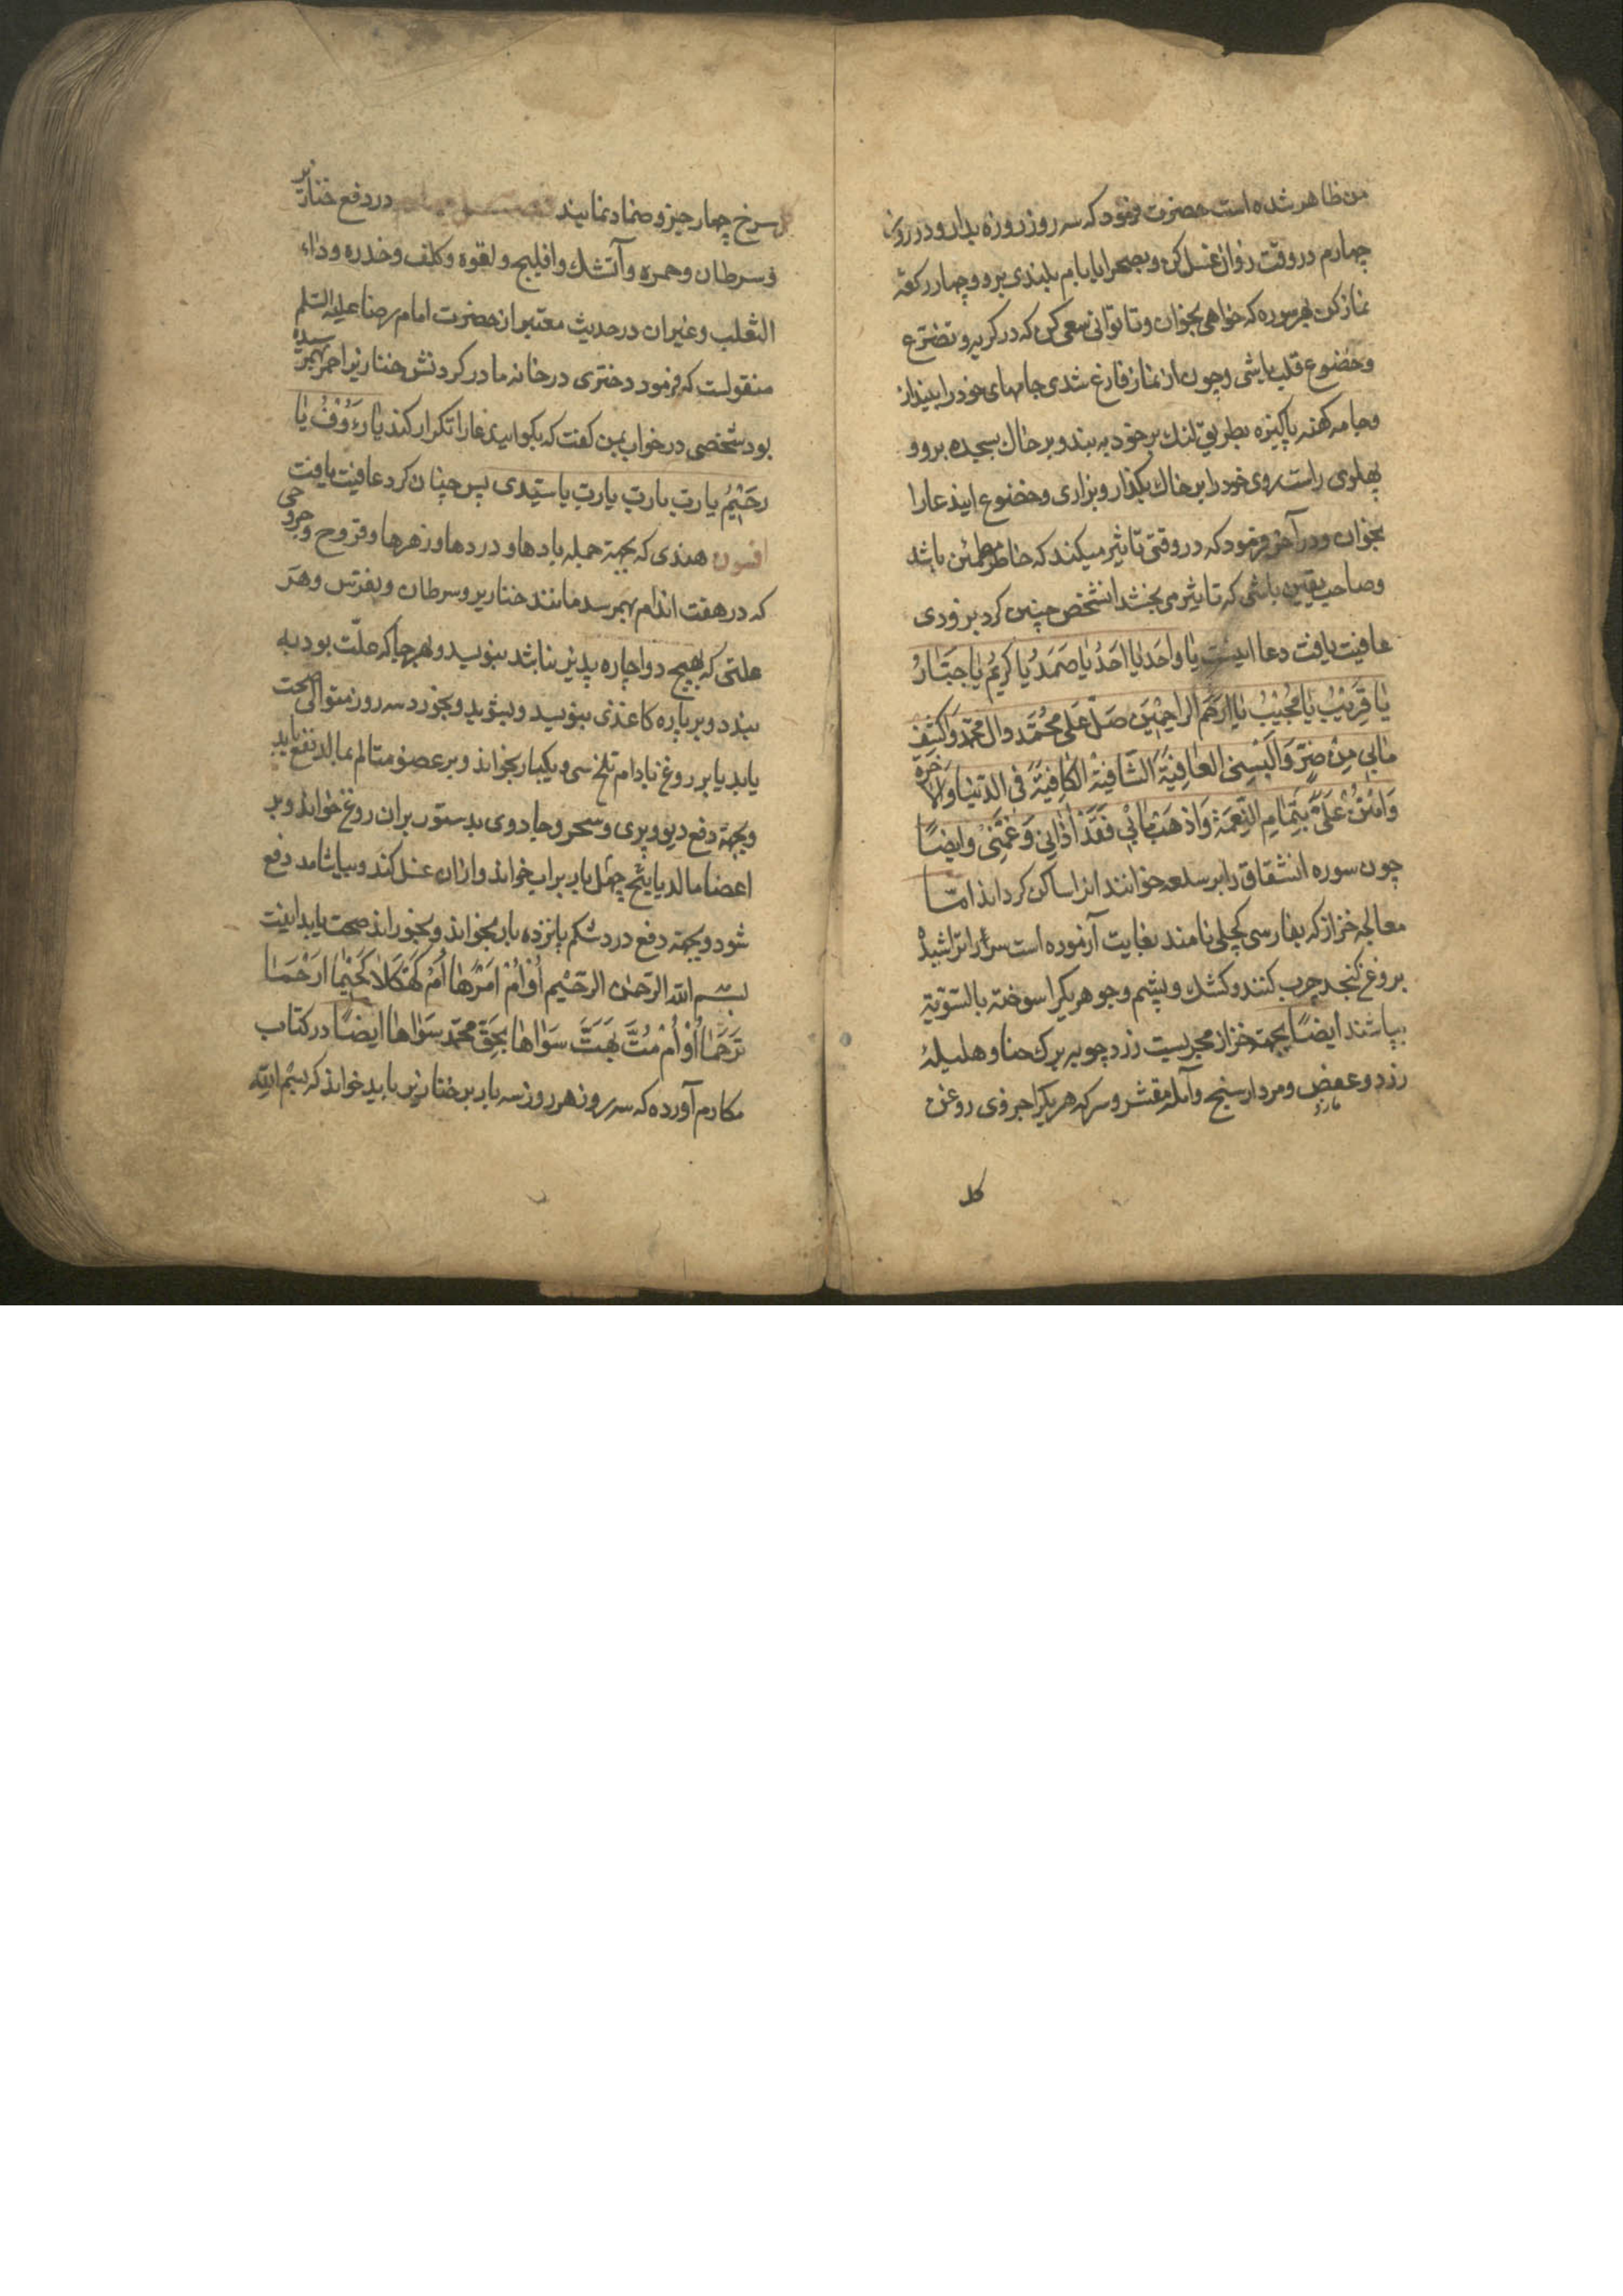 من ظاهر شده است حضرت فرمود که سه روز روزه بدار و در روز
چهارم در وقت زوال غسل کن و بصحرا یا بام بلندی برو و چهار رکعة
نماز کن بهر سوره که خواهی بخوان و تا توانی سعی کن که در گریه و تضرع
و خضوع قلب باشی و چون از نماز فارغ شدی جامهای خود را بینداز
و جامه کهنه پاکیزه بطریق لنك بر خود به بند و بر خاك بسجده برو و
پهلوی راست روی خود را بر خاك بگذار و بزاری و خضوع ایندعا را
بخوان و در آخر فرمود که در وقتی تاثیر میکند که خاطر مطمئن باشد
و صاحب یقین باشی که تاثیر می بخشد انشخص چنین کرد بزودی
عافیت یافت دعا اینست یا واحد یا احَدُ یا صَمَدُ یا کریمُ یا جَبّارُ
یا قَریبُ یا مُجیبُ یا ارحَم الراحِمینَ صلّ عَلی محُمّد و ال محمّد وَاکشِف
مابی مِنْ ضرّ وَالبِسنی العافِیَة الشافیَة الکافِیَة فی الدنیا والاخرة
وَامنُن عَلَیّ بِتَمامِ النِعمَة وَاذهَب مابی فَقَد اَذانی وَ غَمّنی و ایضًا
چون سوره انشقاق را بر سلعه خوانند انرا ساکن گرداند امّا
معالجه خزاز که بفارسی کچلی نامند بغایت آزموده است سر را تراشیده
بروغن کنجد چرب کنند و کشك و پشم و جو هر یکرا سوخته بالسّویة
بپاشند ایضًا بجهة خزاز مجربست زرد چوبه برك حنا و هلیلهٔ
زرد و عفص و مردار سنج و آمله مقشر و سرکه هر یکرا جزوی روغن
مازو
کل
کل سرخ چهار جزو ضماد نمایند در دفع خنازیر
و سرطان و حمره و آتشك و افلیج و لقوه و کلف و خدره و داء
الثعلب و غیر ان در حدیث معتبر از حضرت امام رضا علیه السّلم
منقولست که فرمود دختری در خانه ما در گردنش خنازیر احمر بهمرسیده
بود شخصی در خواب بمن گفت که بگو ایندعا را تکرار کند یا رَءُوفُ یا
رحَیمُ یا ربّ یا ربّ یا ربّ یا سیّدی پس چنان کرد عافیت یافت
افسون هندی که بجهة جمله بادها و دردها و زهرها و قروح و جروحی
که در هفت اندام بهمرسد مانند خنازیر و سرطان و نقرس و هَر
علتی که بهیچ دوا چاره پذیر نباشد بنویسد و بهر جا که علّت بود به
بندد و بر پاره کاغذی بنویسد و بشوید و بخورد سه روز متوالی صحت
یابد یا بر روغن بادام تلخ سی و یکبار بخواند و بر عضو متالم بمالد نفع یابد
و بجهة دفع دیو و پری و سحر و جادوی بدستور بران روغن خواند و بر
اعضا مالد یا پنج چهل بار بر اب خواند و ازان غسل کند و بیاشامد دفع
شود و بجهة دفع درد شکم پانزده بار بخواند و بخوراند صحت یابد اینست
بسم الله الرحمن الرحیم
سَواها بحَقّ محمّد سَواها ایضًا در کتاب
مکارم آورده که سه روز هر روز سه بار بر خنازیر باید خواند که بسْم الله